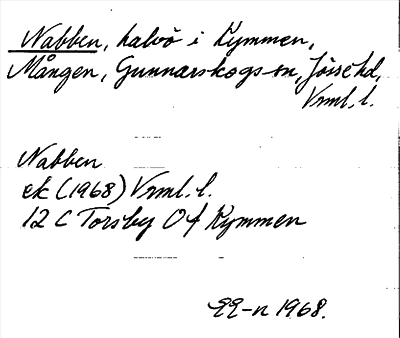 Nabben, halvö i Kymmen,
Mången, Gunnarskogs sn, Jösse hd,
Vrml. l.
Nabben
ek (1968) Vrml. l.
12 C Torsby 04 Kymmen
1968.